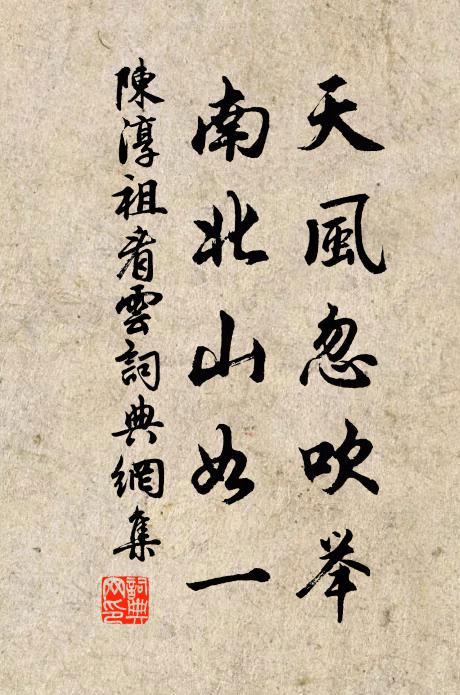 天風忽吹举
南北山如一
陳淳祖看雲詞典網集
詞典網印